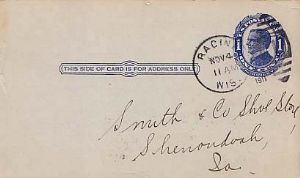 RACINE
NOV 4
11 AM
WIS.
1911
1 1
THIS SIDE OF CARD IS FOR ADDRESS ONLY
Smith & Co Shoe Store
Shenandoah,
Ia.